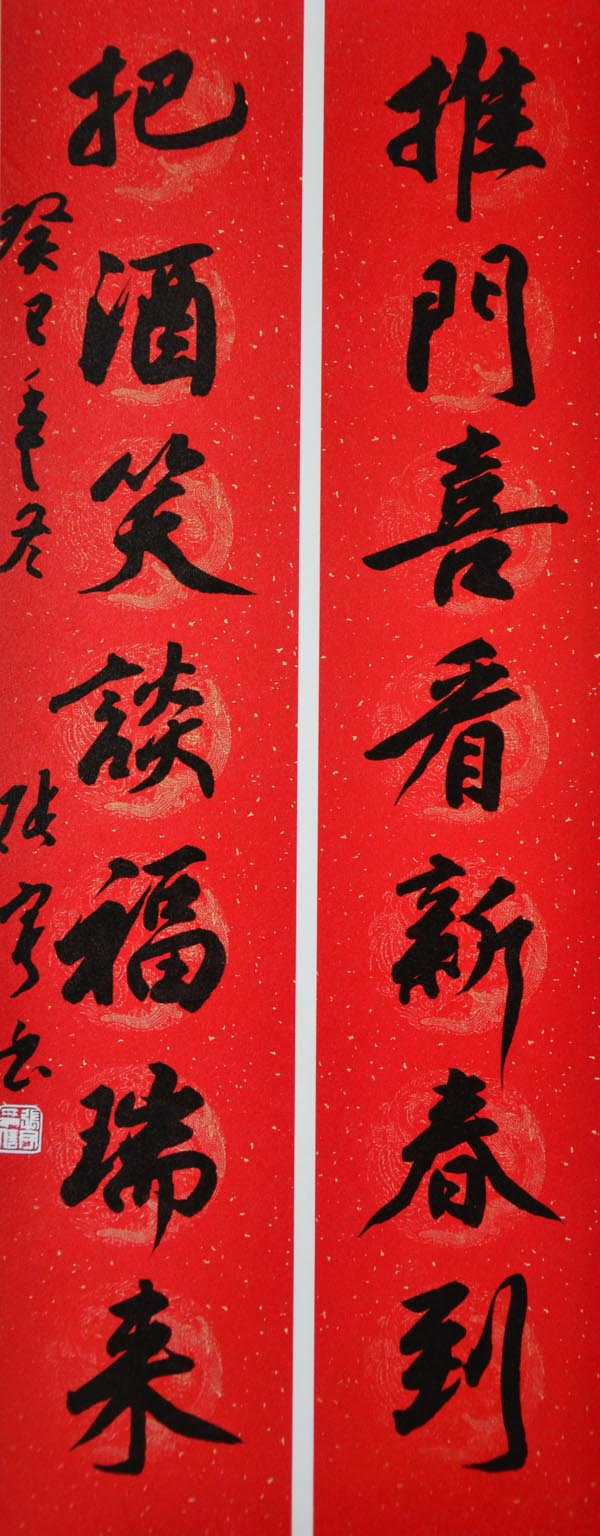 推門喜看新春到
把酒笑談福瑞来
癸巳年冬